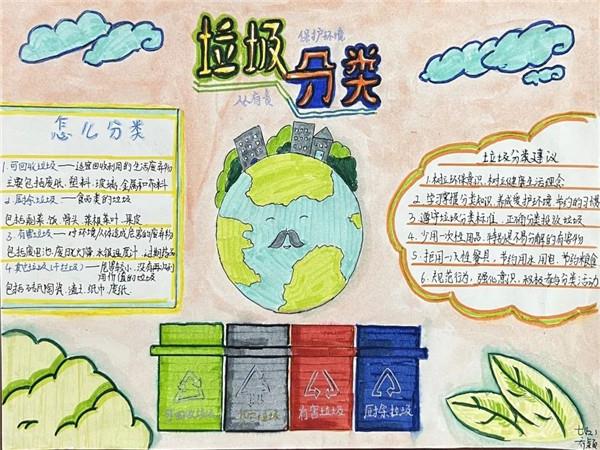 垃圾
分类
保护环境
人有责
怎么分类
1.可回收垃圾——适宜回收利用的生活废弃物
主要包括废纸、塑料、玻璃、金属和布料
2.厨余垃圾——食品类的垃圾
包括剩菜、饭、骨头、菜根菜叶、果皮
3.有害垃圾——对环境人体造成危害的废弃物
包括废电池、废日光灯、水银温度计、过期药品
4.其它垃圾(干垃圾)——危害较小、没有再次利
用价值的垃圾
包括砖瓦陶瓷、渣土、纸巾、废纸
垃圾分类建议
1.树立环保意识、树立健康生活观念
2.学习掌握分类知识、养成爱护环境、节约的习惯
3.遵守垃圾分类标准、正确分类投放垃圾
4.少用一次性用品、特别是不易分解的有害物
5.拒用一次性餐具、节约用水用电、节约粮食
6.规范行为、强化意识、积极参与分类活动
可回收垃圾
其它垃圾
有害垃圾
厨余垃圾